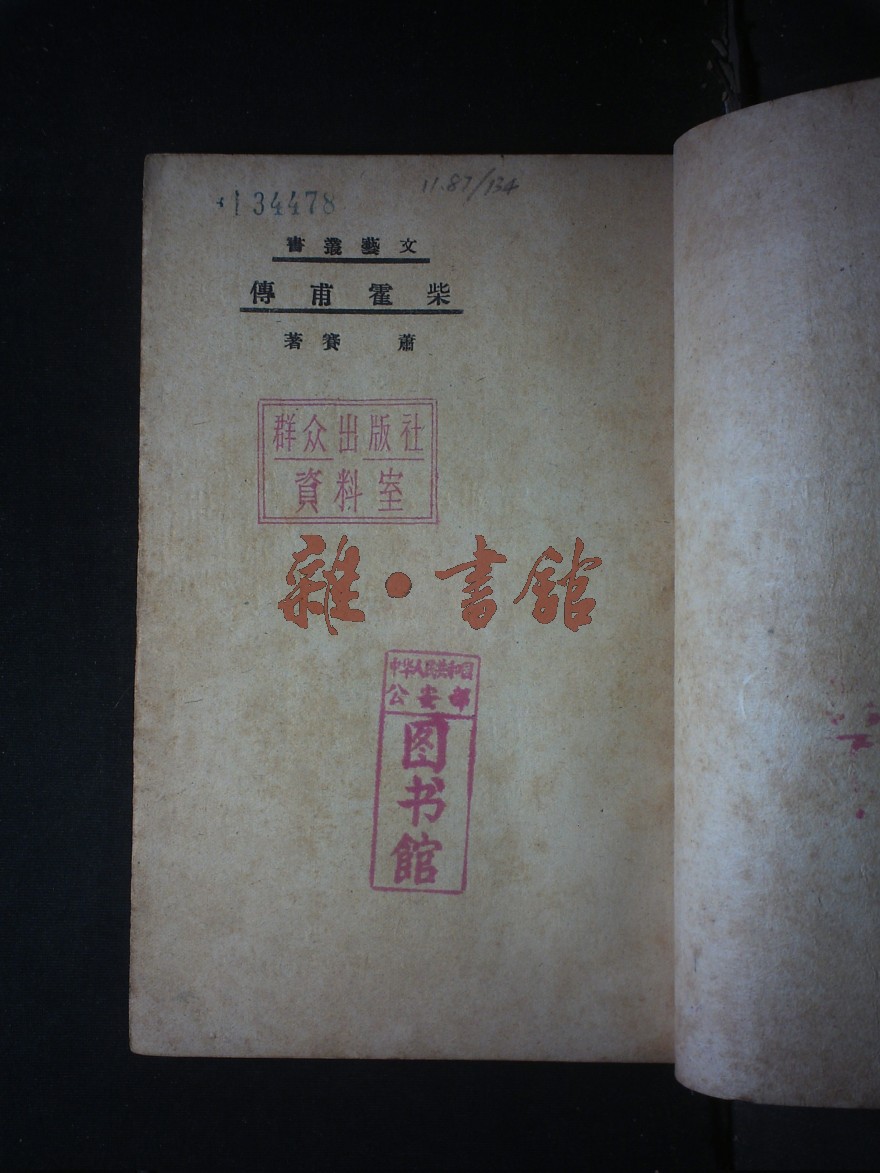 34478
11.87/134
文藝叢書
柴霍甫傳
蕭賽著
群众出版社
資料室
雜·書舘
中华人民共和国
公安部
图书館